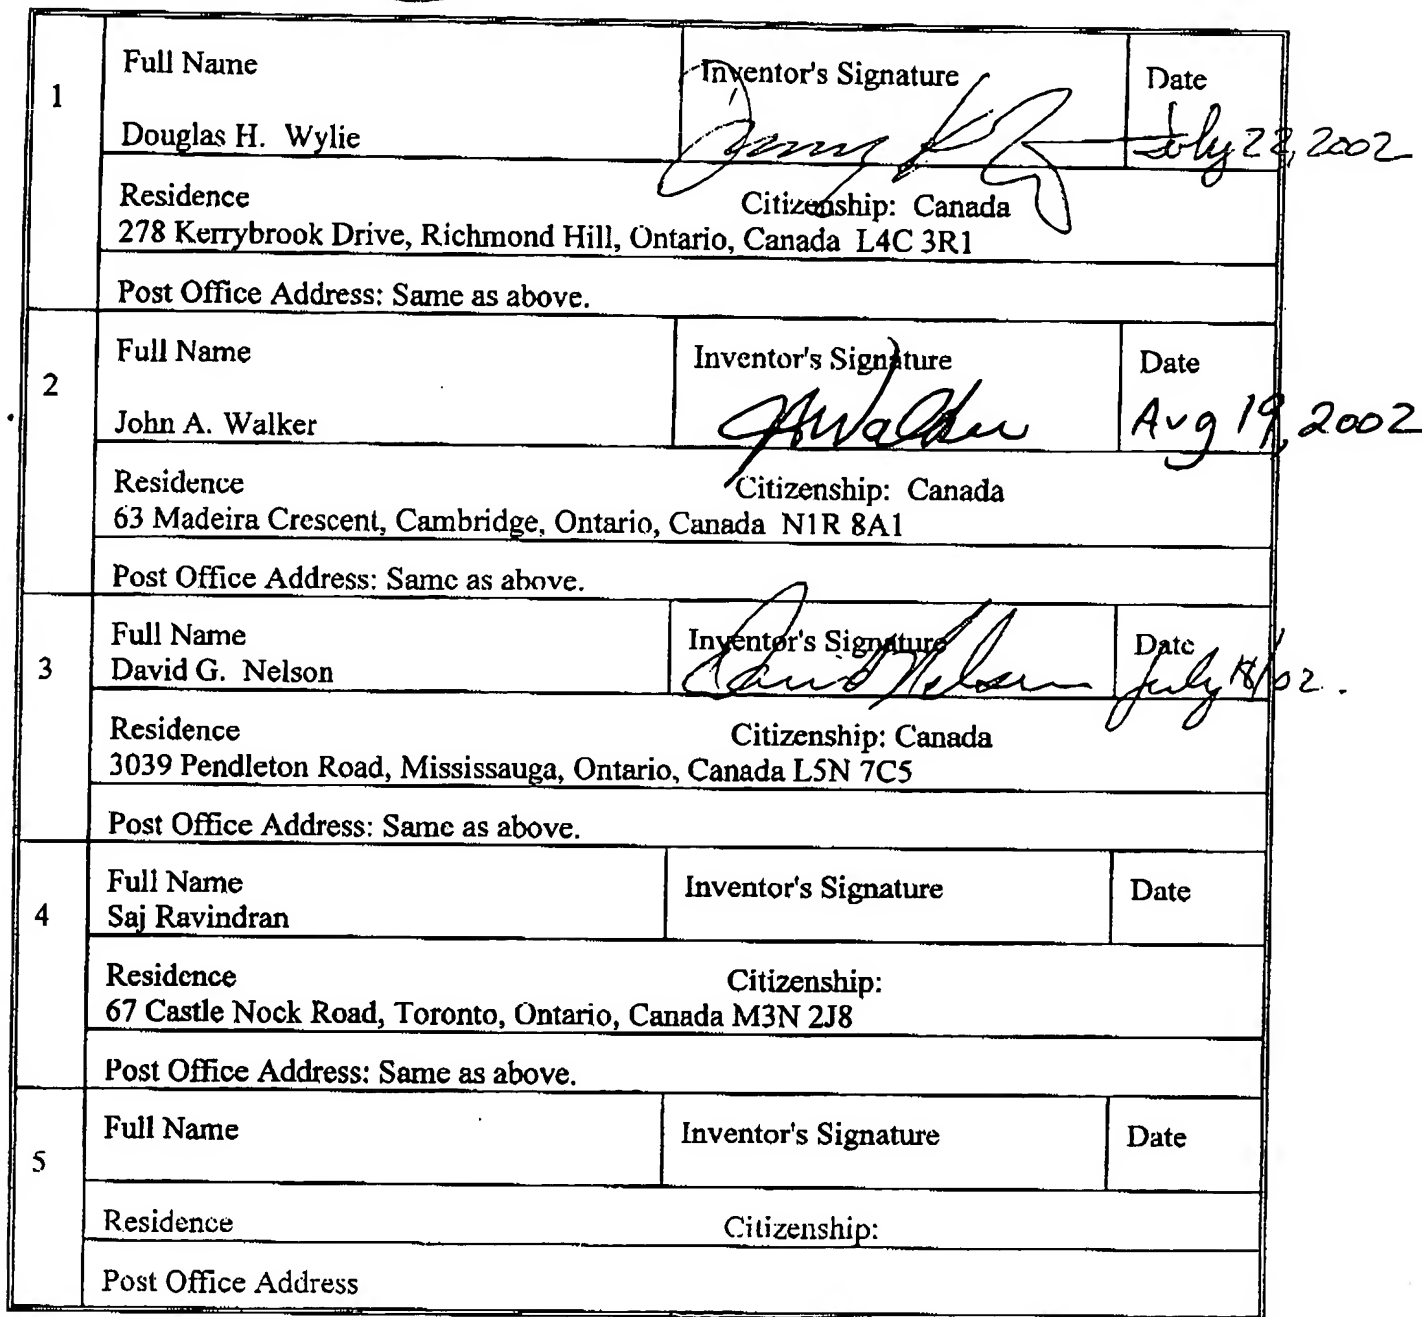 1
Full Name
Inventor's Signature
Date
Douglas H. Wylie
July 22, 2002
Residence
Citizenship: Canada
278 Kerrybrook Drive, Richmond Hill, Ontario, Canada L4C 3R1
Post Office Address: Same as above.
2
Full Name
Inventor's Signature
Date
John A. Walker
JAWalker
Aug 19, 2002
Residence
Citizenship: Canada
63 Madeira Crescent, Cambridge, Ontario, Canada N1R 8A1
Post Office Address: Same as above.
3
Full Name
Inventor's Signature
Date
David G. Nelson
David Nelson
July 18/02.
Residence
Citizenship: Canada
3039 Pendleton Road, Mississauga, Ontario, Canada L5N 7C5
Post Office Address: Same as above.
4
Full Name
Inventor's Signature
Date
Saj Ravindran
Residence
Citizenship:
67 Castle Nock Road, Toronto, Ontario, Canada M3N 2J8
Post Office Address: Same as above.
5
Full Name
Inventor's Signature
Date
Residence
Citizenship:
Post Office Address